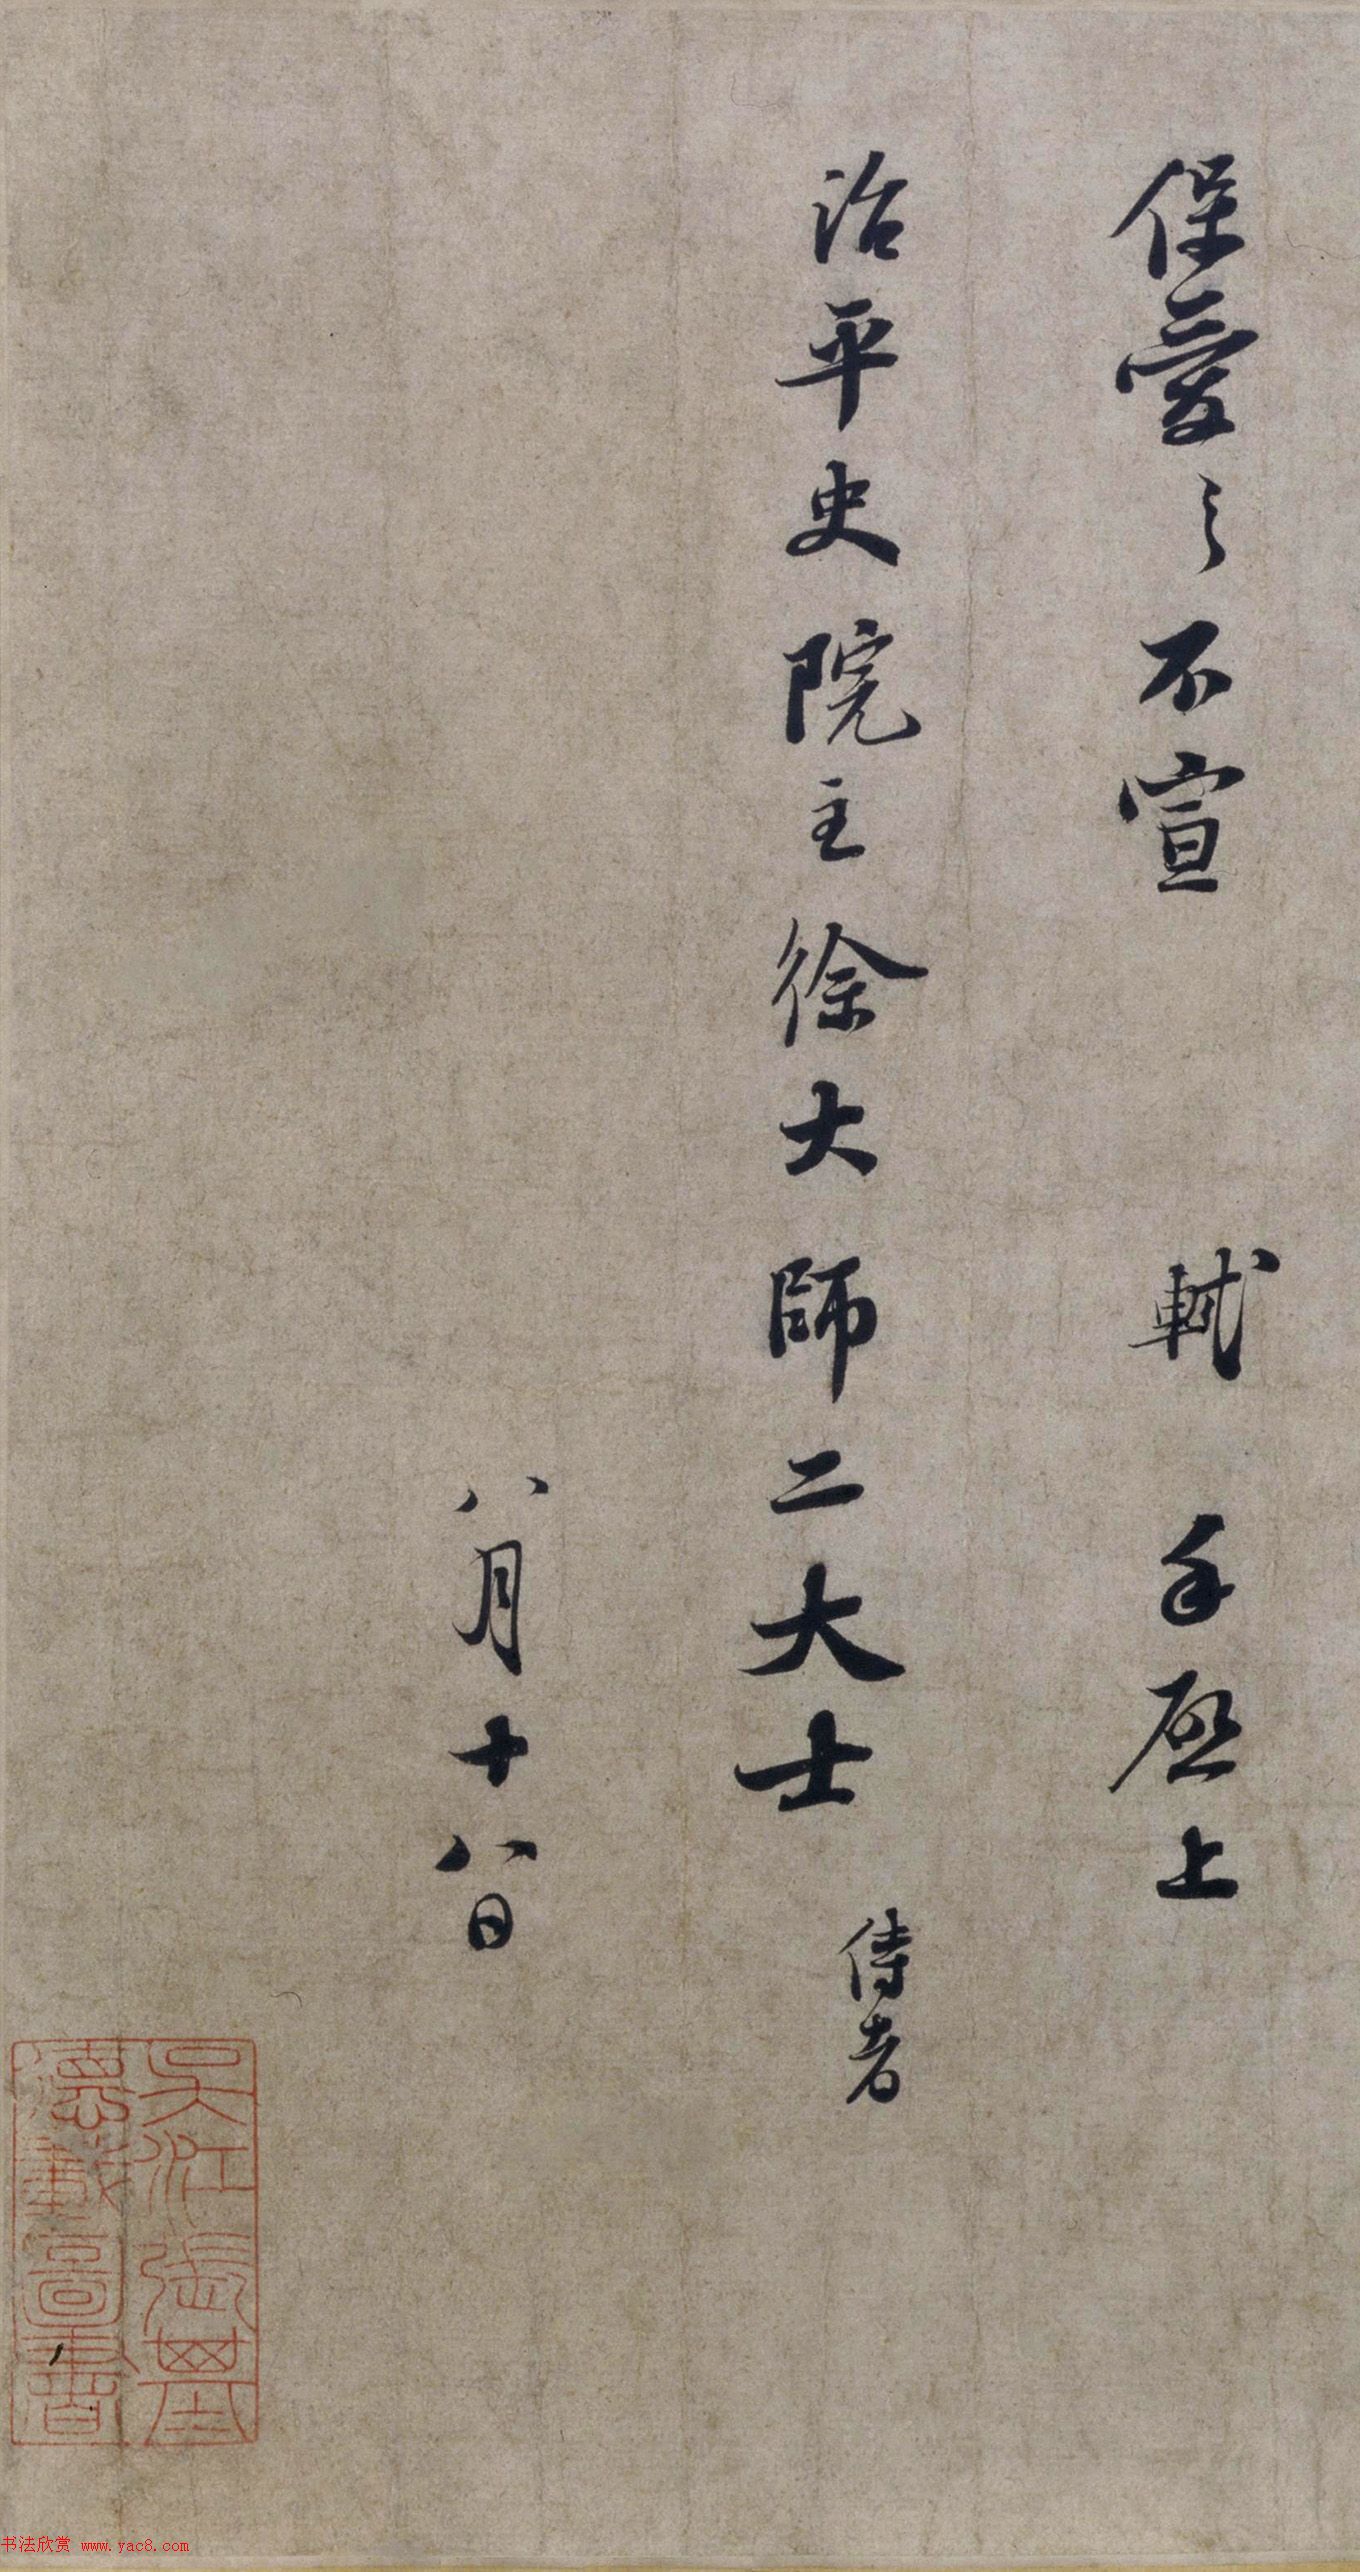 保愛之不宣　軾　手啓上
治平史院主徐大師二大士　侍者
八月十八日
吳江張
德載圖書
书法欣赏 www.yac8.com